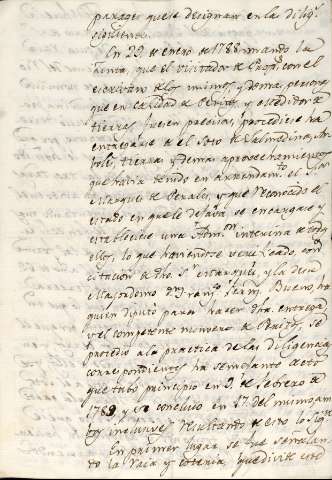 parages que se designan en la dilig.ª
siguiente.
En 29 de enero de 1788 mando la
Junta, que el visitador de con el
escribano de los mismos, y demas personas
que en calidad de Peritos, y medidor de
tierras fuesen precisas, procediese ha
entregarse de el Soto de Salmedina, Ar
boles tierras y demas aprovechamientos
que havia tenido en arrendam.to el S.or
Marques de Perales, y que reconocido el
estado en que le dejaba se encargase y
estableciese una Adm.on interina de todo
ello, lo que haviendose verificado, con
citacion de dho S.or Marques, y la de su
Mayordomo D.n Fran.co Bueno, ha
quien diputo para hacer dha entrega,
y el competente numero de Peritos, se
procedio a la practica de las diligencias
correspondientes ha semejante acto
que tubo principio en 2 de febrero de
1788 y se concluió en 17 del mismo, am
bos inclusive resultando de ello lo sig.te
En primer lugar se fue señalan
do la raya y que divide este